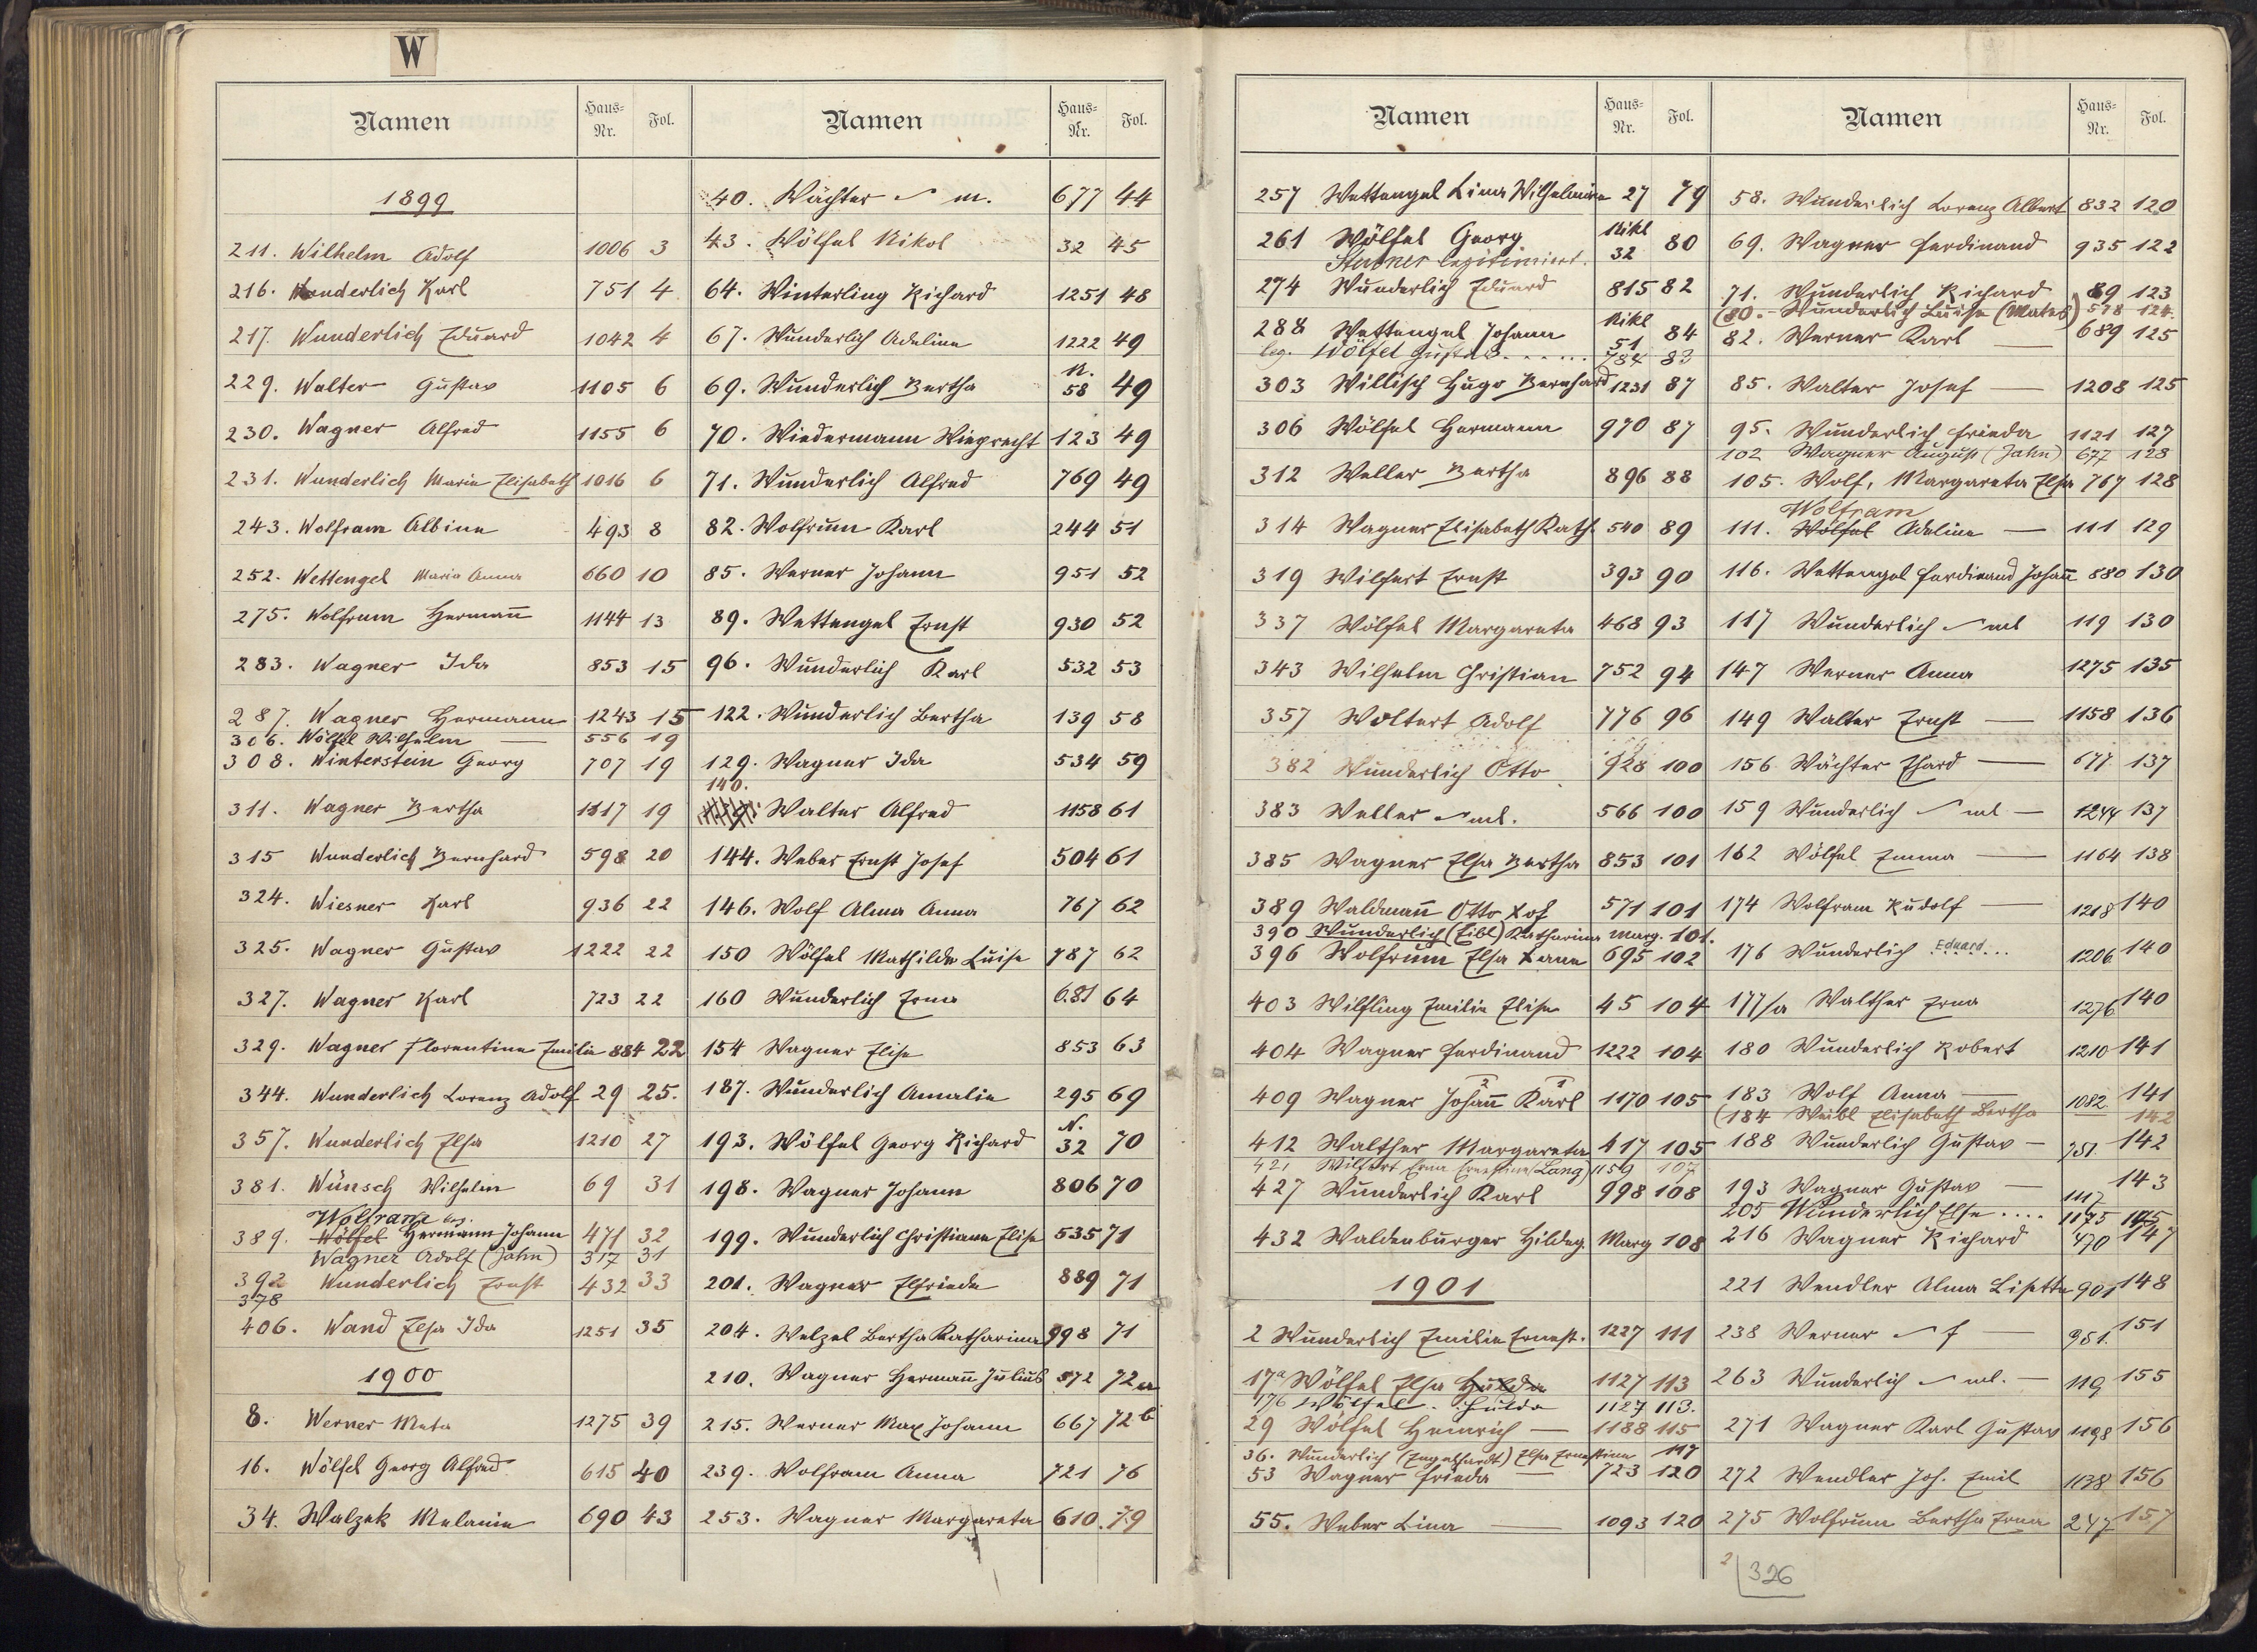 W
Namen Haus-Nr. Fol.
1899
211. Wilhelm Adolf 1006 3
216. Wunderlich Karl 751 4
217. Wunderlich Eduard 1042 4
229. Walter Gustav 1105 6
230. Wagner Alfred 1155 6
231. Wunderlich Maria Elisabeth 1016 6
243. Wolfram Albine 493 8
252. Wettengel Maria Anna 660 10
275. Wolfrum Hermann̄ 1144 13
283. Wagner Ida 853 15
287. Wagner Hermann 1243 15
306. Wölfel Wilhelm — 556 19
308. Winterstein Georg 707 19
311. Wagner Bertha 1117 19
315 Wunderlich Bernhard 598 20
324. Wiesner Karl 936 22
325. Wagner Gustav 1222 22
327. Wagner Karl 723 22
329. Wagner Florentine Emilie 884 22
344. Wunderlich Lorenz Adolf 29 25.
357. Wunderlich Elsa 1210 27
381. Wünsch Wilhelm 69 31
Wolfram
389. Wölfel Hermann Johann 471 32
Wagner Adolf (Jahn) 317 31
392 Wunderlich Ernst 432 33
378
406. Wand Elsa Ida 1251 35
1900
8. Werner Meta 1275 39
16. Wölfel Georg Alfred 615 40
34. Walzek Melanie 690 43
Namen Haus-Nr. Fol.
40. Wächter m. 677 44
43. Wölfel Nikol 32 45
64. Winterling Richard 1251 48
67. Wunderlich Adeline 1222 49
69. Wunderlich Bertha N. 58 49
70. Wiedermann Wieprecht 123 49
71. Wunderlich Alfred 769 49
82. Wolfrum Karl 244 51
85. Werner Johann 951 52
89. Wettengel Ernst 930 52
96. Wunderlich Karl 532 53
122. Wunderlich Bertha 139 58
129. Wagner Ida 534 59
140.
Walter Alfred 1158 61
144. Weber Ernst Josef 504 61
146. Wolf Alma Anna 767 62
150 Wölfel Mathilde Luise 787 62
160 Wunderlich Erna 681 64
154 Wagner Elise 853 63
187. Wunderlich Amalie 295 69
193. Wölfel Georg Richard N. 32 70
198. Wagner Johann 806 70
199. Wunderlich Christiane Elise 535 71
201. Wagner Elfriede 889 71
204. Welzel Bertha Katharina 998 71
210. Wagner Herman̄ Julius 572 72a
215. Werner Max Johann 667 72b
239. Wolfram Anna 721 76
253. Wagner Margareta 610 79
Namen Haus-Nr. Fol.
257 Wettengel Lina Wilhelmine 27 79
261 Wölfel Georg Nikl 32 80
Stubner legitimiert.
274 Wunderlich Eduard 815 82
288 Wettengel Johann Nikl 51 84
leg. Wölfel Gustav ..... 784 83
303 Willisch Hugo Bernhard 1231 87
306 Wölfel Hermann 970 87
312 Weller Bertha 896 88
314 Wagner Elisabeth Kath. 540 89
319 Wilfert Ernst 393 90
337 Wölfel Margareta 468 93
343 Wilhelm Christian 752 94
357 Woltert Adolf 776 96
382 Wunderlich Otto 928 100
383 Weller ml. 566 100
385 Wagner Elsa Bertha 853 101
389 Waldman̄ Otto 571 101
390 Wunderlich (Eibl) Katharina Marg. 101.
396 Wolfrum Elsa 695 102
403 Wilfling Emilie Elise 45 104
404 Wagner Ferdinand 1222 104
2 1
409 Wagner Johan̄ Karl 1170 105
412 Walther Margareta 417 105
421 Wilfert Erna Ernestine (Lang) 1159 107
427 Wunderlich Karl 998 108
432 Waldenburger Hildeg. Marg 108
1901
2 Wunderlich Emilie Ernest. 1227 111
17a Wölfel Elsa Hulda 1127 113
17b Wölfel Hulda 1127 113.
29 Wölfel Heinrich — 1188 115
36. Wunderlich (Engelhardt) Elsa Ernestine 117
53 Wagner Frieda — 723 120
55. Weber Lina — 1093 120
Namen Haus-Nr. Fol.
58. Wunderlich Lorenz Albert 832 120
69. Wagner Ferdinand 935 122
71. Wunderlich Richard 89 123
(80. Wunderlich Luise (Mates) 578 124.
82. Werner Karl — 689 125
85. Walter Josef — 1208 125
95. Wunderlich Frieda 1121 127
102 Wagner August (Jahn) 677 128
105. Wolf, Margareta Elsa 767 128
Wolfram
111. Wölfel Adeline — 111 129
116. Wettengel Ferdinand Johan̄ 880 130
117 Wunderlich ml 119 130
147 Werner Anna 1275 135
149 Walter Ernst — 1158 136
156 Wächter Ehard — 677 137
159 Wunderlich ml — 1244 137
162 Wölfel Emma — 1164 138
174 Wolfram Rudolf — 1218 140
176 Wunderlich Eduard 1206 140
177/a Walther Erna 1276 140
180 Wunderlich Robert 1210 141
183 Wolf Anna — 1082 141
(184 Weibl Elisabeth Bertha 142
188 Wunderlich Gustav — 751. 142
193 Wagner Gustav — 1117 143
205 Wunderlich Else .... 1175 145
216 Wagner Richard 470 147
221 Wendler Alma Lisette 901 148
238 Werner f — 951. 151
263 Wunderlich ml. — 119 155
271 Wagner Karl Gustav 1198 156
272 Wendler Joh. Emil 1138 156
275 Wolfrum Bertha Erna 247 157
2 326